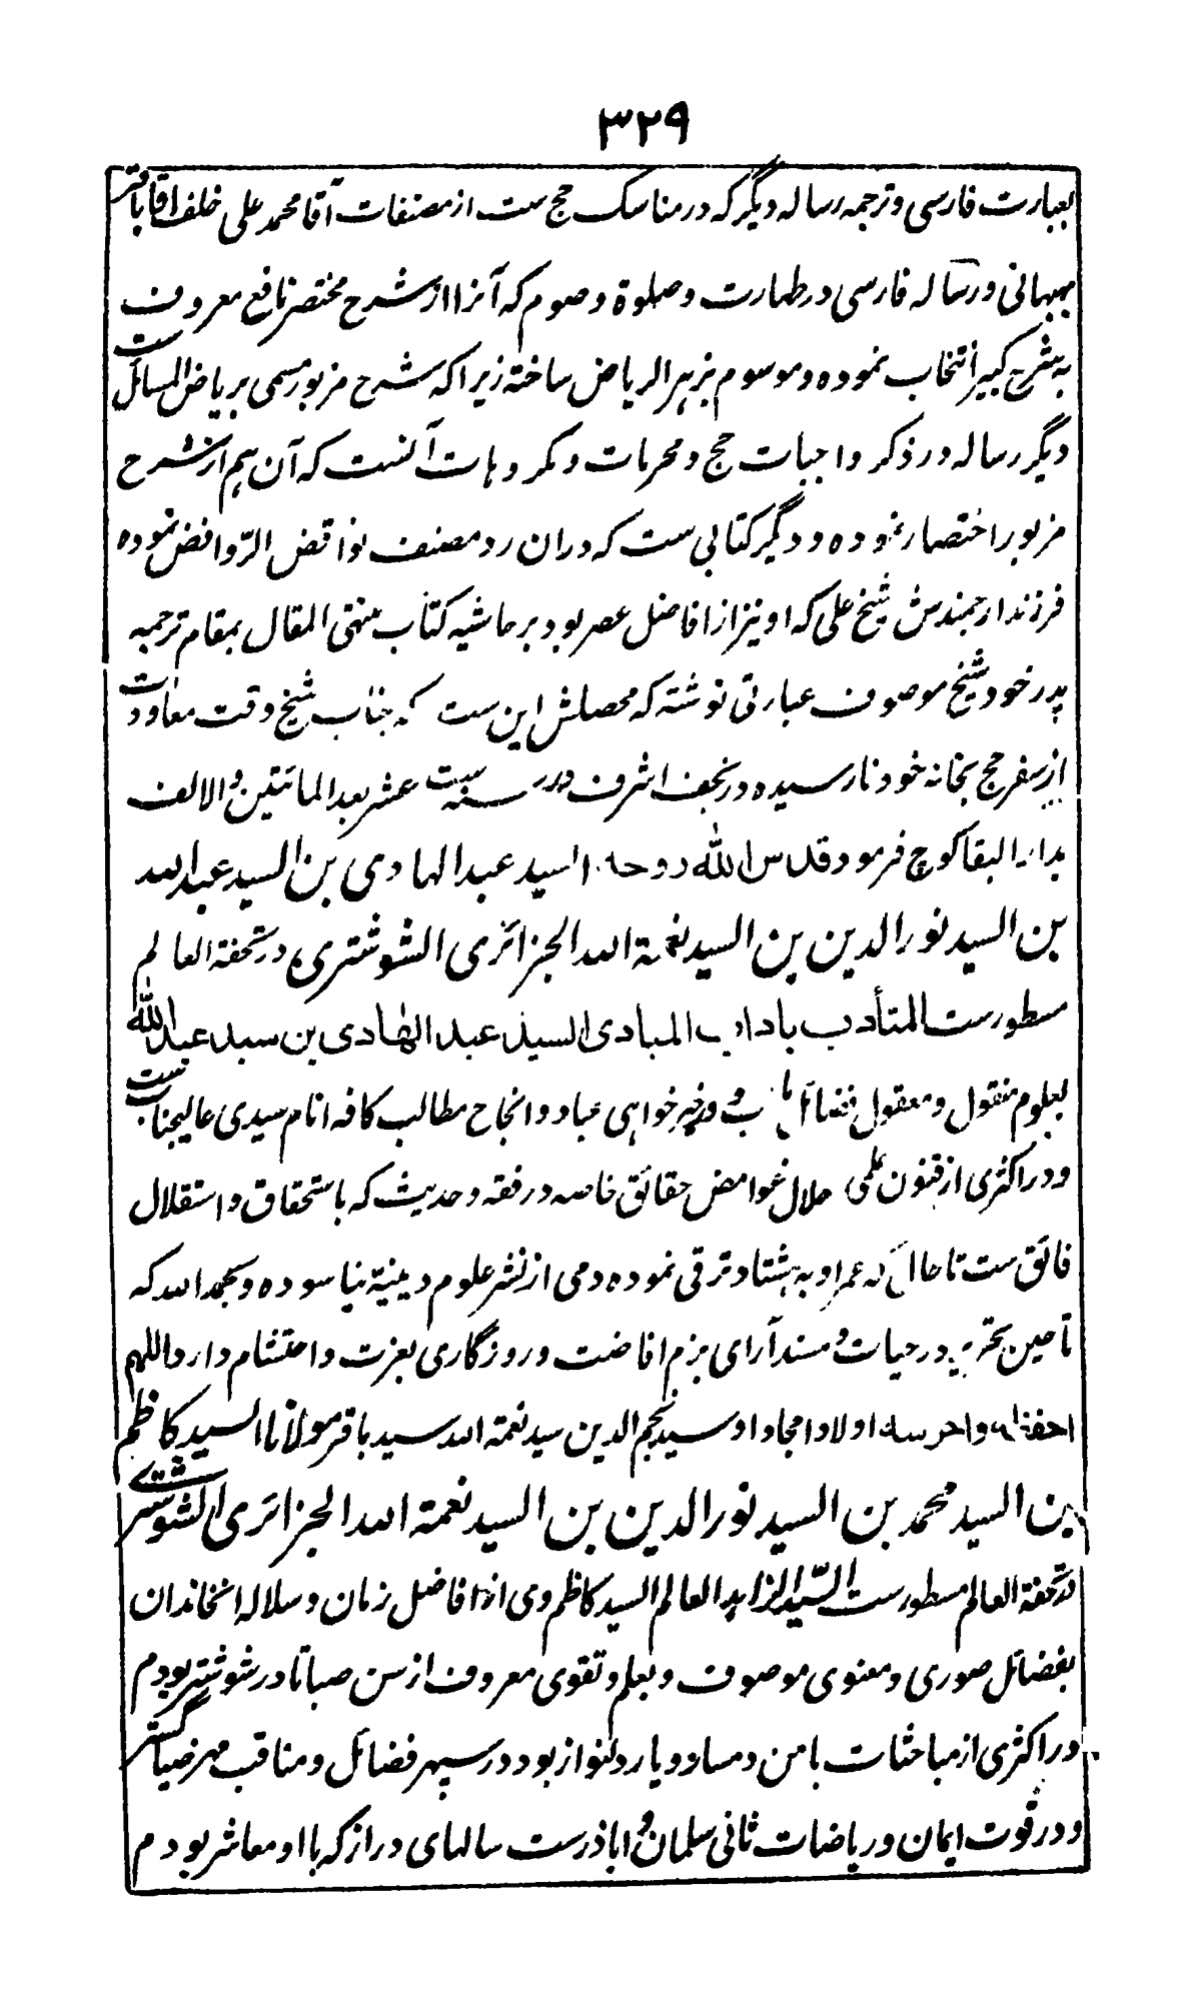 ۳۲۹
بعبارت فارسی و ترجمه رساله دیگر که در مناسک حج ست از مصنفات آقا محمد علی خلف آقا باقر
بهبهانی و رساله فارسی در طهارت و صلوة و صوم که آنرا از شرح مختصر نافع معروف
به شرح کبیر انتخاب نموده و موسوم بزهر الریاض ساخته زیرا که شرح مزبور مسمی بریاض المسائل ست
دیگر رساله در ذکر واجبات حج و محرمات و مکروهات آنست که آن هم از شرح
مزبور اختصار نموده و دیگر کتابی ست که دران رد مصنف نواقض الروافض نموده
فرزند ارجمندش شیخ علی که او نیز از افاضل عصر بود بر حاشیه کتاب منتهی المقال بمقام ترجمه
پدر خود شیخ موصوف عبارتی نوشته که محصلش این ست که جناب شیخ وقت معاودت
از سفر حج بخانه خود نارسیده در نجف اشرف در سنه ست عشر بعد المائتین و الالف
بدار البقا کوچ فرمود قدس الله روحه السید عبد الهادی بن السید عبد الله
بن السید نور الدین بن السید نعمة الله الجزائری الشوشتری در تحفة العالم
مسطورست المتأدب باداب المبادی السید عبد الهادی بن سید عبد الله
بعلوم منقول و معقول فضائل و خیر خواهی عباد و انجاح مطالب کافه انام سیدی عالیجناب ست
و در اکثری از فنون علمی حلال غوامض حقائق خاصه در فقه و حدیث که باستحقاق و استقلال
فائق ست تا حال که عمر او به هشتاد ترقی نموده دمی از نشر علوم دینیة نیاسوده و بحمد الله که
تا حین تحریر در حیات و مسند آرای بزم افاضت و روزگاری بعزت و احتشام دارد اللهم
احفظه و احرسه اولاد امجاد او سید نجم الدین سید نعمة الله سید باقر مولانا السید کاظم
بن السید محمد بن السید نور الدین بن السید نعمة الله الجزائری الشوشتری
در تحفة العالم مسطورست السید الزاهد العالم السید کاظم وی از افاضل زمان و سلاله آنخاندان
بفضائل صوری و معنوی موصوف و بعلم و تقوی معروف از سن صبا تا در شوشتر بودم
در اکثری از مباحثات با من دمساز و یار دلنواز بود در سپهر فضائل و مناقب مهر ضیا گستر
و در قوت ایمان و ریاضات ثانی سلمان و اباذرست سالهای دراز که با او معاشر بودم